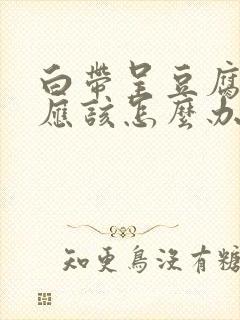 白帶呈豆腐
應該怎麼办
知更鳥沒有糖